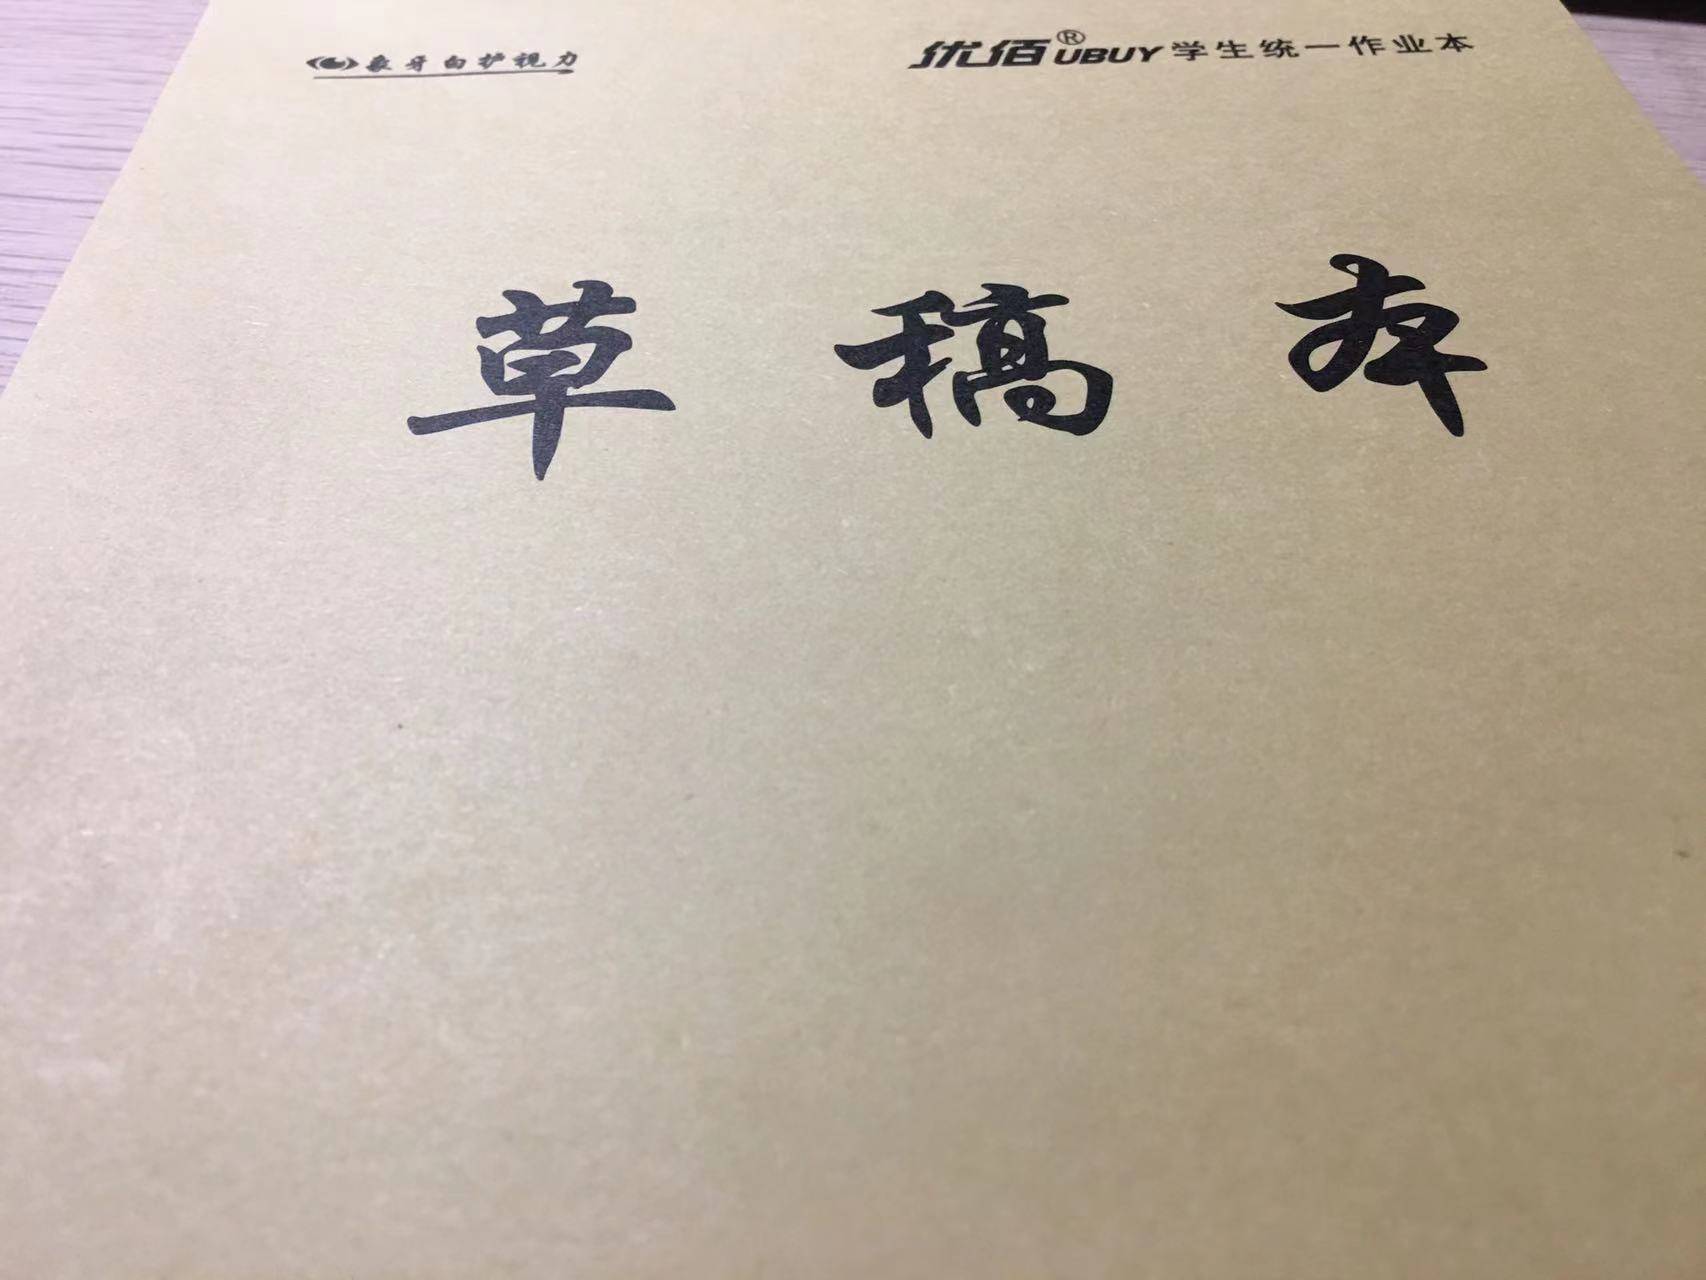 象牙白护视力
优佰®UBUY学生统一作业本
草稿本